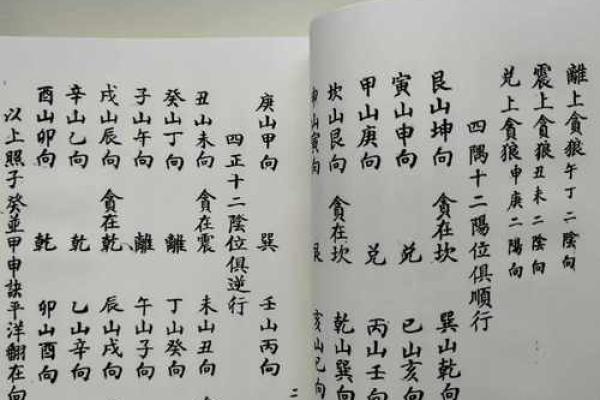 離上貪狼午丁二陰向
震上貪狼丑未二陰向
兌上貪狼申庚二陽向
四隅十二陽位俱順行
艮山坤向 貪在坎 巽山乾向
寅山申向 兌 巳山亥向
甲山庚向 兌 丙山壬向
坎山艮向 貪在坎 乾山巽向
申山寅向 艮 亥山巳向
庚山甲向 巽 壬山丙向
四正十二陰位俱逆行
丑山未向 貪在震 未山丑向
癸山丁向 離 丁山癸向
子山午向 離 午山子向
戌山辰向 貪在乾 辰山戌向
辛山乙向 乾 乙山辛向
酉山卯向 乾 卯山酉向
以上照子癸並甲申訣平洋翻在向
二